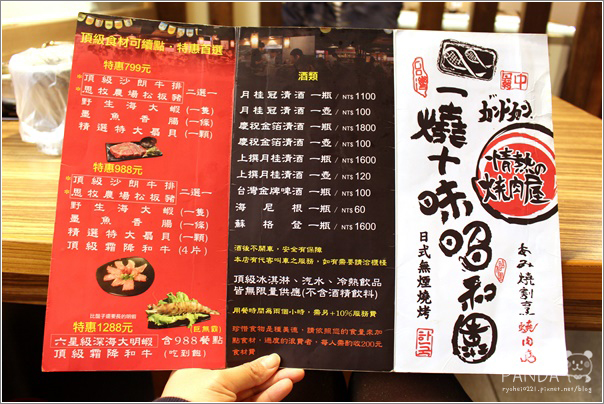 頂級食材可續點．特惠首選
特惠799元
頂級沙朗牛排
恩牧農場松板豬
二選一
野生海大蝦(一隻)
墨魚香腸(一條)
精選特大扇貝(一顆)
特惠988元
頂級沙朗牛排
恩牧農場松板豬
二選一
野生海大蝦(一隻)
墨魚香腸(一條)
精選特大扇貝(一顆)
頂級霜降和牛(4片)
比盤子還要長的明蝦
(巨無霸)
特惠1288元
六星級深海大明蝦
頂級霜降和牛
含988餐點
(吃到飽)
酒類
月桂冠清酒 一瓶/NT$1100
月桂冠清酒 一壺/NT$100
慶祝金箔清酒 一瓶/NT$1800
慶祝金箔清酒 一壺/NT$100
上撰月桂清酒 一瓶/NT$1600
上撰月桂清酒 一壺/NT$120
台灣金牌啤酒 一瓶/NT$100
海尼根 一瓶/NT$60
蘇格登 一瓶/NT$1600
酒後不開車，安全有保障
本店有代客叫車之服務，如有需要請洽櫃檯
頂級冰淇淋、汽水、冷熱飲品
皆無限量供應(不含酒精飲料)
用餐時間為兩個小時，需另+10%服務費
珍惜食物是種美德，請依照您的食量來加
點食材，過度的浪費者，每人需酌收200元
食材費
台灣
中
一燒十味昭和園
日式無煙燒烤
情熱の
燒肉屋
あみ燒割烹
燒肉店
PANDA
ryohei0221.pixnet.net/blog